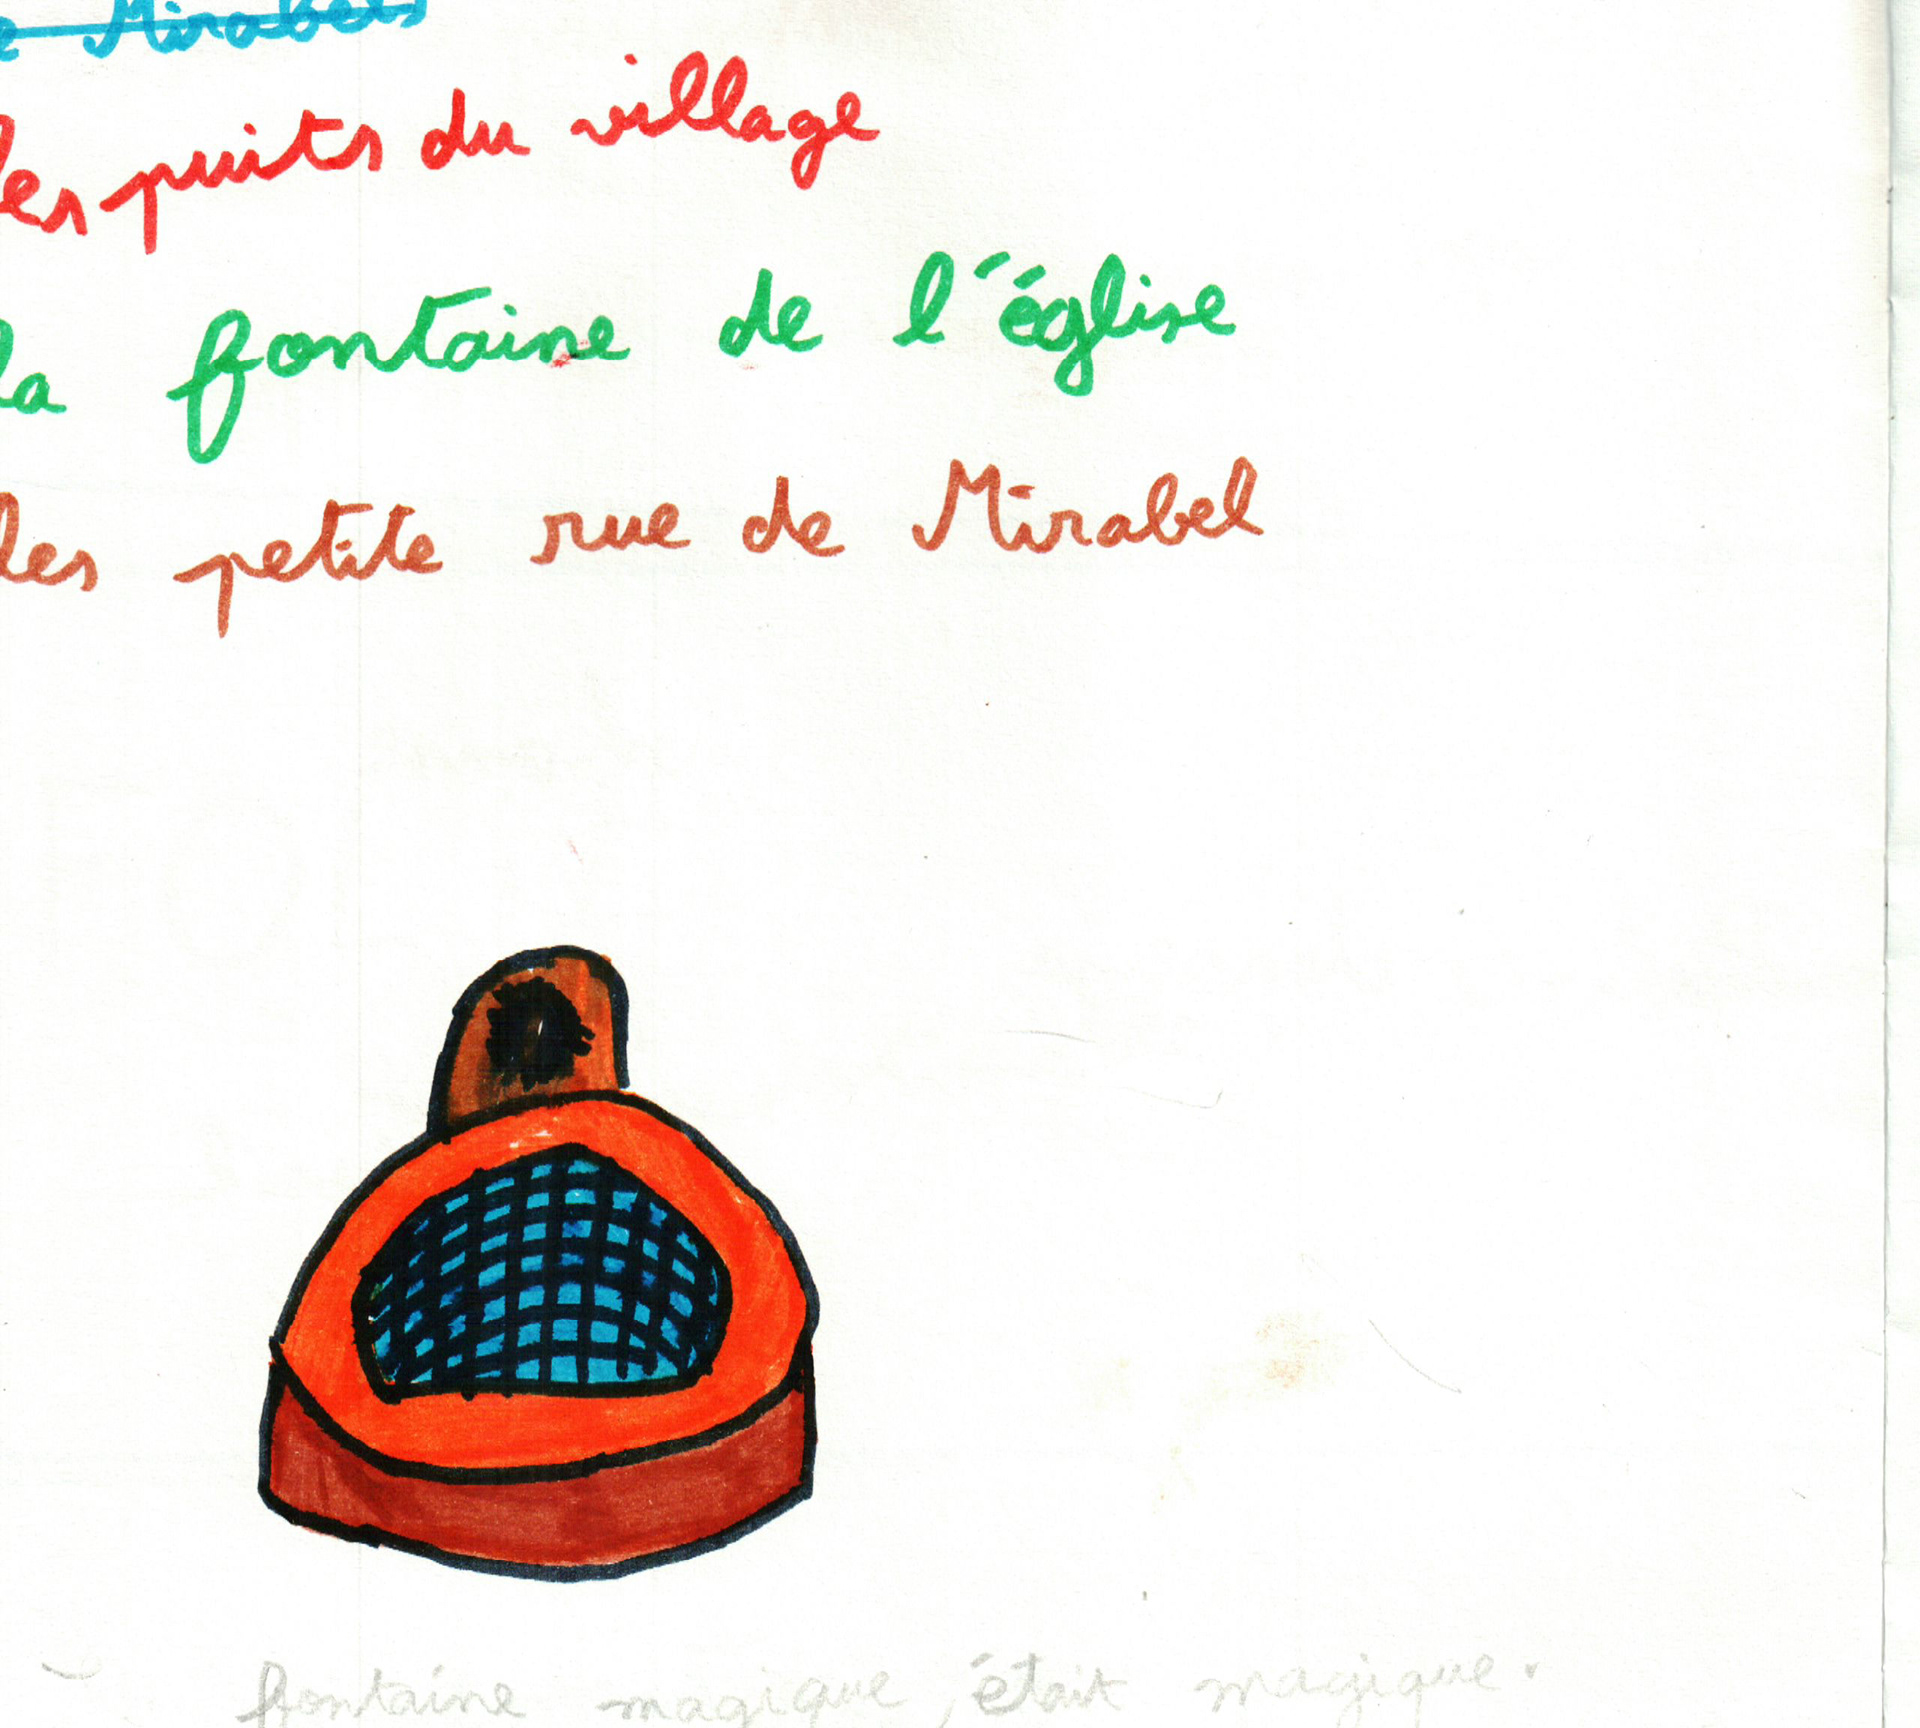 e Mirabels
les puits du village
la fontaine de l'église
les petite rue de Mirabel
fontaine magique, était magique.